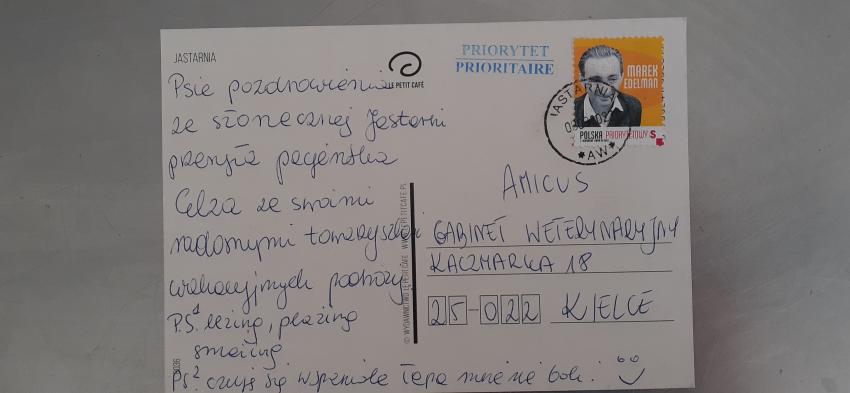 JASTARNIA
LE PETIT CAFÉ
PRIORYTET
PRIORITAIRE
MAREK
EDELMAN
POLSKA PRIORYTETOWY S
JASTARNIA
*AW*
Psie pozdrowienia
ze słonecznej Jastarni
przesyła pacjentka
Celza ze swoimi
radosnymi towarzyszkami
wakacyjnych podróży.
P.S.1 leżing, plażing
smażing
Ps.2 czuję się wspaniale łapa mnie nie boli.
© WYDAWNICTWO LE PETIT CAFÉ WWW.LEPETITCAFE.PL
AMICUS
GABINET WETERYNARYJNY
KACZMARKA 18
25-022 KIELCE